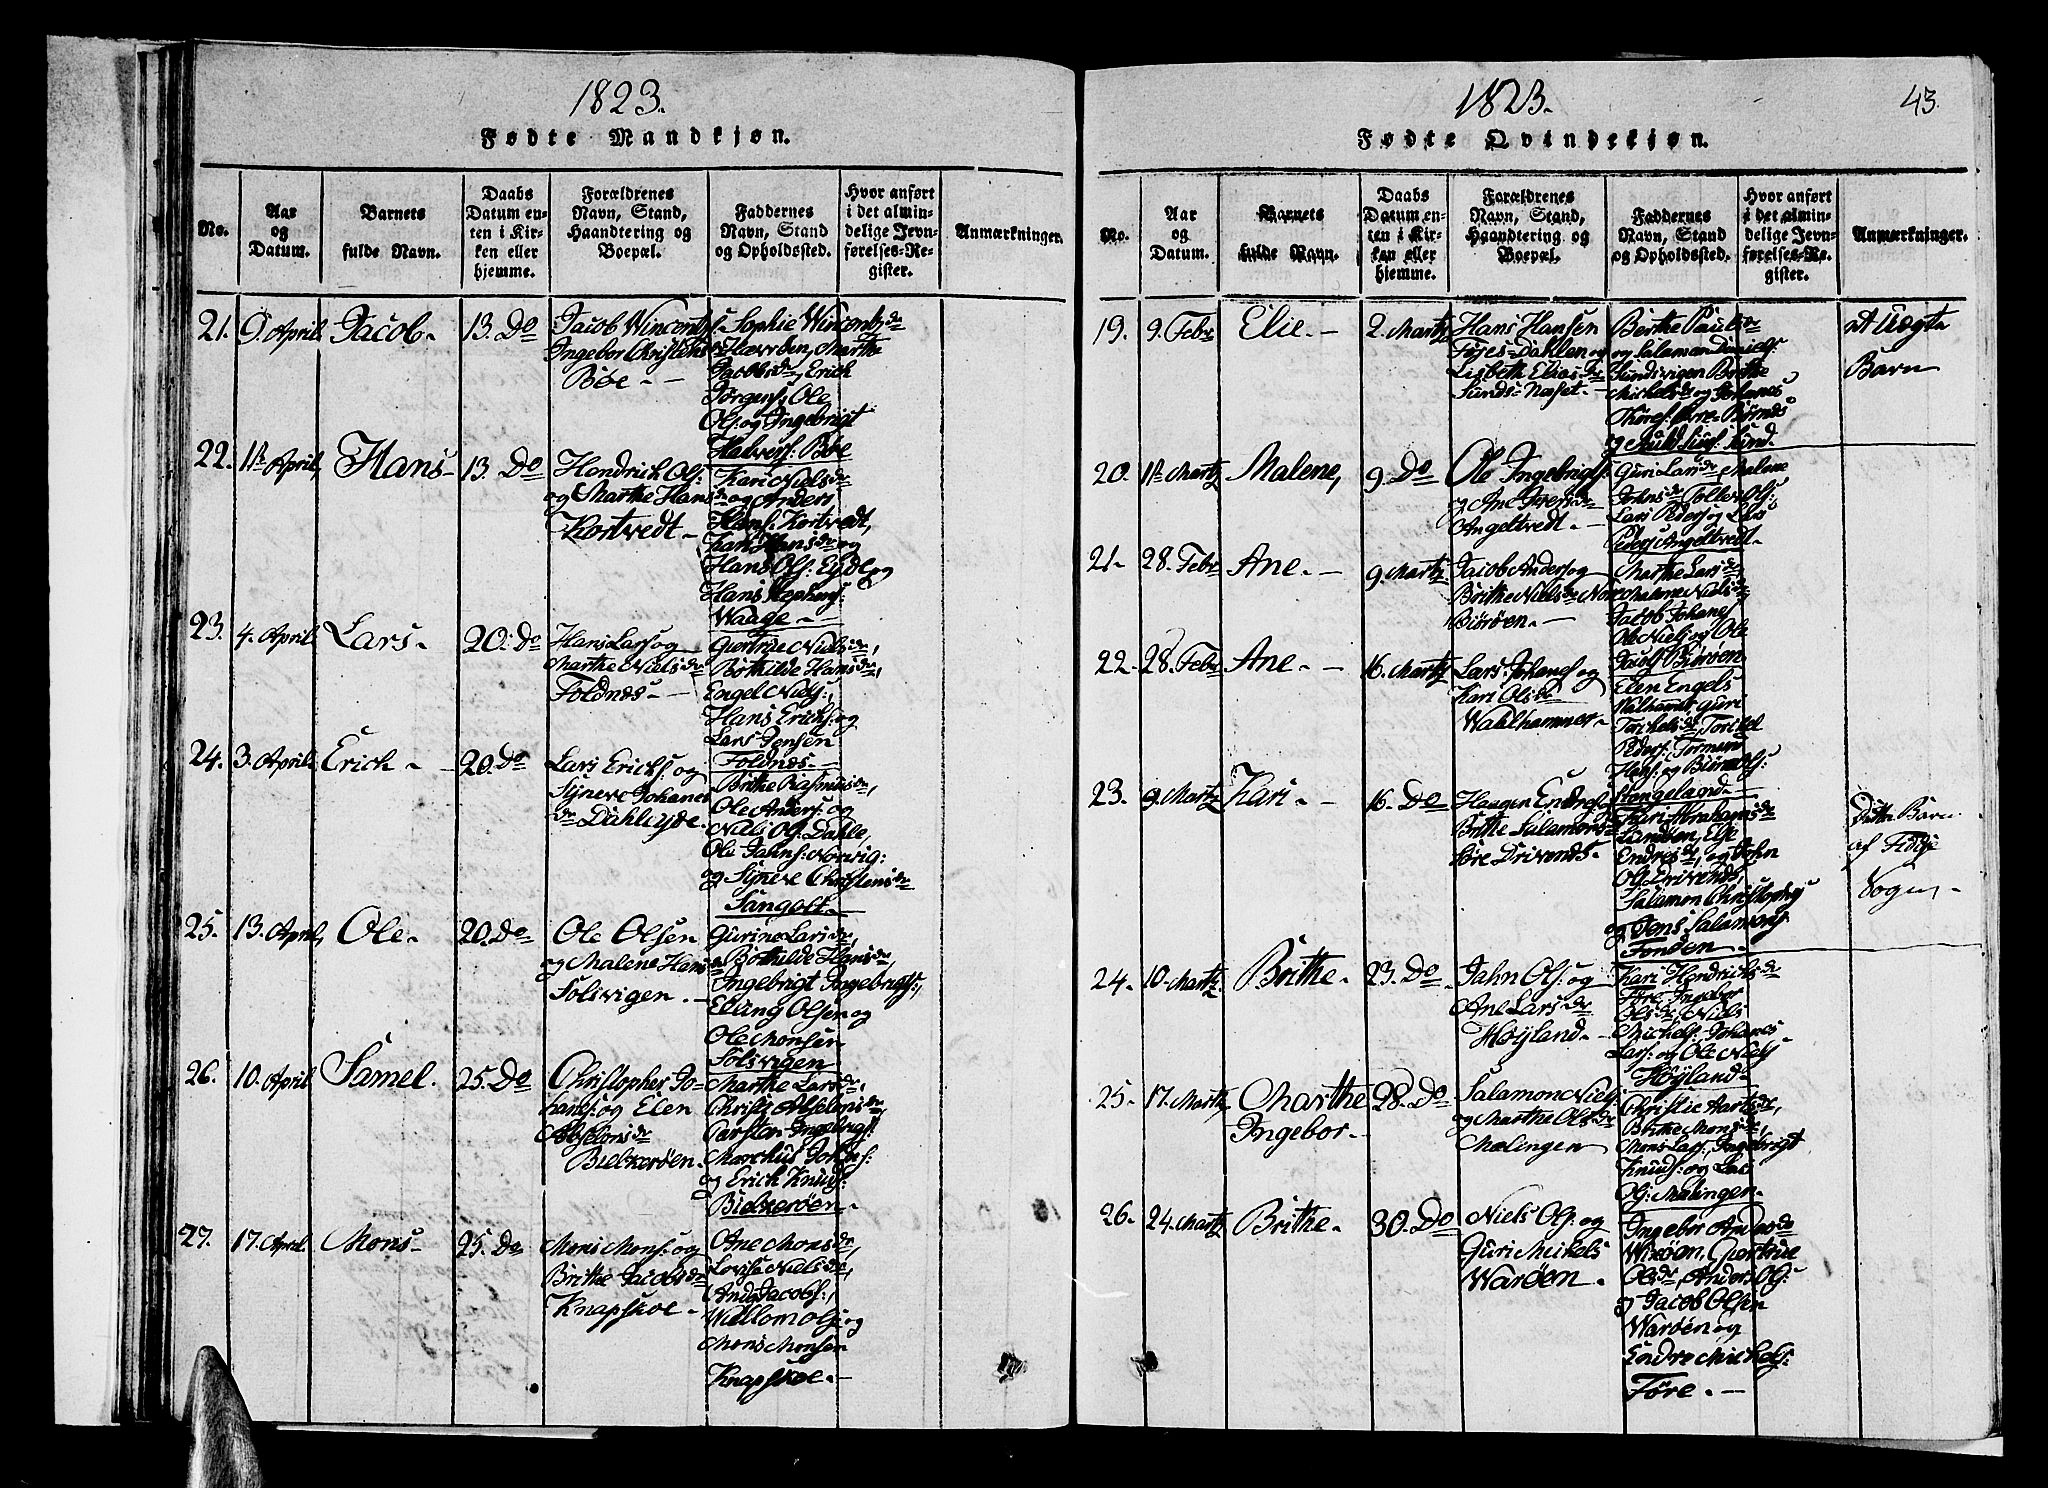 1823.
Fødte Mandkjøn.
No.
Aar
og
Datum.
Barnets
fulde Navn.
Daabs
Datum en-
ten i Kir-
ken eller
hjemme.
Forældrenes
Navn, Stand,
Haandtering og
Boepæl.
Faddernes
Navn, Stand
og Opholdssted.
Hvor anført
i det almin-
delige Jevn-
førelses-Re-
gister.
Anmærkninger.
21. 9. April. Jacob. 13. Do
Jacob Wincents:
Ingebor Christens
Bøe.
Sophie Wincents dr
Marthe
Jacobs dr, Erick
Jørgens, Ole
Ols: og Ingebrigt
Halvors: Bøe
22. 11te April, Hans 13. Do
Hendrick Ols:
og Marthe Hans dr
Kortvedt
Kari Niels dr
og Anders
Hans: Kortvedt,
Kari Hans dr og
Hans Ols: Eyde og
Hans Stephens:
Waage.
23. 4. April. Lars 20. Do
Hans Lars: og
Marthe Niels dr
Foldnes
Giertrue Niels dr,
Bothilde Hans dr,
Engel Niels:,
Hans Ericks: og
Lars Jensen
Foldnes.
24. 3. April. Erick 20. Do
Lars Ericks: og
Syneve Johanes
dr Dahleyde.
Brithe Rasmus dr,
Ole Anders: og
Niels Ols: Dahle,
Ole Jahns: Norvig:
og Syneve Christens dr
Sangolt.
25. 13. April, Ole. 20. Do
Ole Olsen
og Malene Hans dr
Solsvigen.
Gurine Lars dr,
Bothilde Hans dr,
Ingebrigt Ingebrigts:,
Elling Olsen og
Ole Monsen
Solsvigen
26. 10. April Samel. 25. Do
Christopher Jo-
hans: og Elen
Abselons dr
Bielkerøen.
Marthe Lars dr,
Christi Abselons dr
Carsten Ingebrigts:
Marchus Johns:
og Erick Knuds:
Bielkerøen.
27. 17. April. Mons 25. Do
Mons Mons: og
Brithe Jacobs dr
Knapskoe
Ane Mons dr,
Lovise Niels dr,
And: Jacobs:,
Willom Ols: og
Mons Monsen
Knapskoe.
1823. 43.
Fødte Qvindekjøn.
No.
Aar
og
Datum.
Barnets
fulde Navn.
Daabs
Datum en-
ten i Kir-
ken eller
hjemme.
Forældrenes
Navn, Stand,
Haandtering og
Boepæl.
Faddernes
Navn, Stand
og Opholdssted.
Hvor anført
i det almin-
delige Jevn-
førelses-Re-
gister.
Anmærkninger.
19. 9. Febr Elie. 2. Martz
Hans Hansen
Føjes-Dahlen og
Lisbeth Elias dr
Sunds-Nesset
Berthe Pauls dr
og Salamon Daniels:
Sundsvigen Brithe
Michels dr og Johanes
Thores:
og Sund.
Et Uægte
Barn
20. 1te Martz Malene, 9 Do
Ole Ingebrigts:
og Ane Ivers dr
Angeltvedt.
Guri Lars dr, Malene
Johns dr Tolle Ols:
Lars Peders: og Lars
Peders: Angeltvedt.
21. 28. Febr Ane. 9. Martz
Jacob Anders: og
Brithe Niels dr Nor
Biørøen.
Marthe Lars dr
Malene Niels dr
Jacob Johanes:
Ole Niels: og Ole
Jacobs: Biørøen
22 28. Febr Ane 16. Martz
Lars Johanes: og
Kari Ols dr
Wahlhammer
Elen Engels
Walhamer, Guri
Torchels dr, Torchel
Peders: Tormund
Hans: og Biørn Ols:
Hougeland
23. 9. Martz Kari 16. Do
Haagen Endres: og
Brithe Salamons dr
Søre Drivenes.
Kari Abrahams dr
Landøen, Else
Endres dr, og John
Ols: Drivenes,
Salamon Christophers:
og Jens Salamons:
Fonden
Dette Barn
af Fielde
Sogn,
24. 10. Martz. Brithe. 23. Do
Jahn Ols: og
Ane Lars dr
Høyland.
Kari Hendricks dr
Føre, Ingebor
Ols dr, Niels
Michels: Johanes
Lars: og Ole Niels:
Høyland
25. 17. Martz, Marthe 28. Do
Ingebor.
Salamon Niels:
og Marthe Ols dr
Mælingen
Christie Aarts dr,
Brithe Mons dr,
Mons Lars:, Ingebrigt
Knuds: og Lars
Ols: Mælingen.
26. 24. Martz Brithe. 30. Do
Niels Ols: og
Guri Mickels
Warøen.
Ingebor Andas dr
Wixøen, Giertrue
Ole dr, Anders Ols:
og Jacob Olsen
Warøen og
Endre Michels:
Føre.